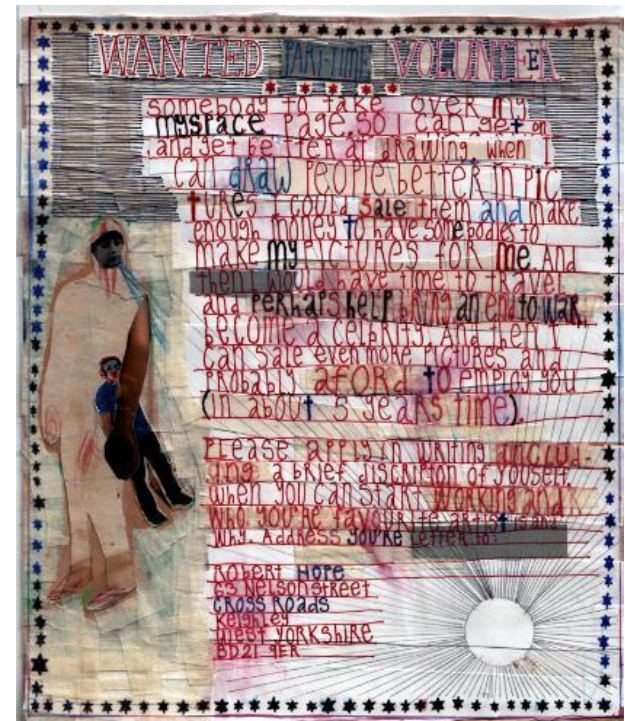 WANTED PART-TIME VOLUNTEER
somebody to take over my
myspace page, so I can get on
,and get better at drawing, when I
can draw people better in pic
tures I could sale them and make
enough money to have somebodies to
make my pictures for me. And
then I would have time to travel
and perhaps help bring an end to war,
become a celbrity. And then I
can sale even more pictures and
probably aford to employ you
(in about 5 years time).
Please apply in writing inclu-
ing a brief discripton of youself.
when you can start working and
who you're favourite artist is and
why. Address you're letter to:
Robert Hope
63 Nelson street
Cross Roads
Keighley
West Yorkshire
BD21 9ER